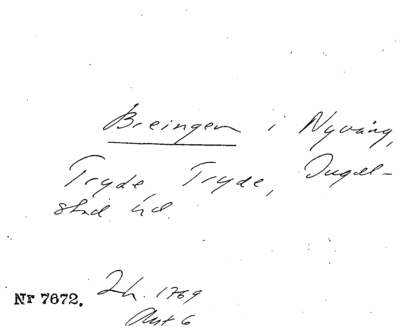 Breingen i Nyvång,
Tryde, Tryde, Ingel-
stad hd.
Nr 7672. Lh. 1769
Ant 6